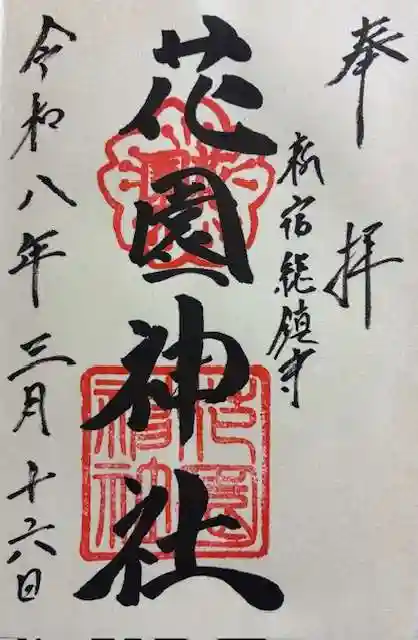 奉拝
新宿総鎮守
花園神社
花園神社
令和八年三月十六日